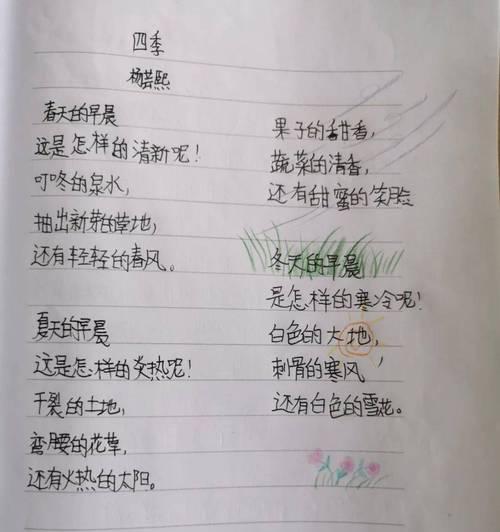 四季
杨芸熙
春天的早晨
这是怎样的清新呢！
叮咚的泉水，
抽出新芽的草地，
还有轻轻的春风。
夏天的早晨
这是怎样的炎热呢！
干裂的土地，
弯腰的花草，
还有火热的太阳。
果子的甜香，
蔬菜的清香，
还有甜蜜的笑脸
冬天的早晨
是怎样的寒冷呢！
白色的大地，
刺骨的寒风，
还有白色的雪花。